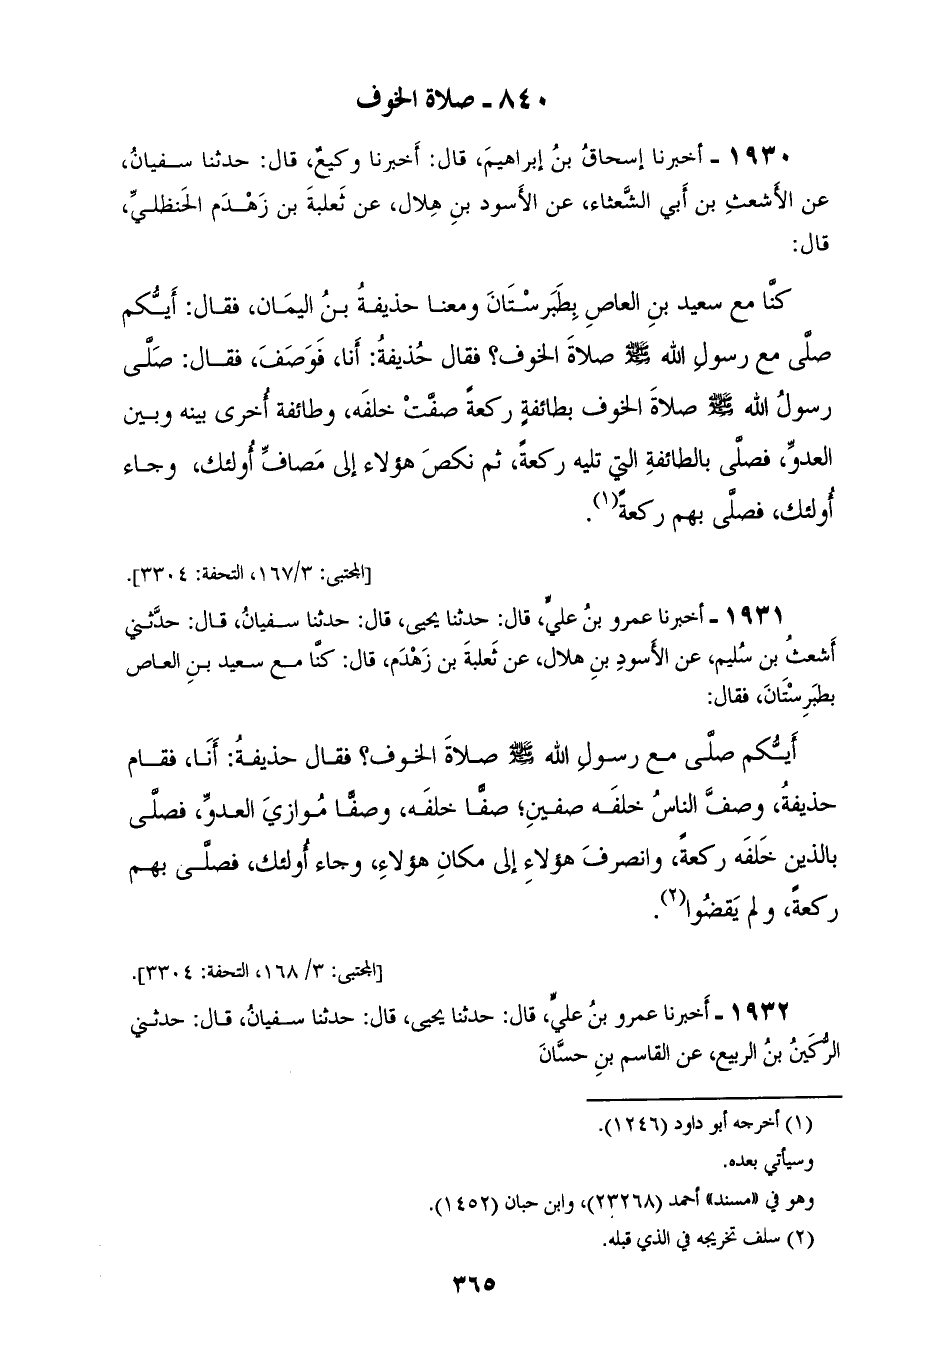 ٨٤٠ ـ صلاة الخوف
١٩٣٠ ـ أخبرنا إسحاقُ بنُ إبراهيمَ، قال: أخبرنا وكيعٌ، قال: حدثنا سفيانُ،
عن الأَشعثِ بن أبي الشَّعثاء، عن الأسود بنِ هِلال، عن ثَعلبةَ بن زَهْدَم الحَنظليِّ،
قال:
كنَّا مع سعيد بنِ العاصِ بِطَبَرِسْتَانَ ومعنا حذيفةُ بنُ اليمَان، فقال: أَيُّكم
صلَّى مع رسولِ الله ﷺ صلاةَ الخوف؟ فقال حُذيفةُ: أنا، فَوَصَفَ، فقال: صَلَّى
رسولُ الله ﷺ صلاةَ الخوف بطائفةٍ ركعةً صفَّتْ خلفَه، وطائفة أُخرى بينه وبين
العدوِّ، فصلَّى بالطائفةِ التي تليه ركعةً، ثم نكصَ هؤلاء إلى مَصافِّ أُولئك، وجاء
أُولئك، فصلَّى بهم ركعةً(١).
[المجتبى: ١٦٧/٣، التحفة: ٣٣٠٤].
١٩٣١ ـ أخبرنا عمرو بنُ عليٍّ، قال: حدثنا يحيى، قال: حدثنا سفيانُ، قال: حدَّثني
أشعثُ بن سُليم، عن الأسودِ بنِ هلال، عن ثَعلبةَ بن زَهْدَم، قال: كنَّا مع سعيد بنِ العاص
بطَبَرِسْتَانَ، فقال:
أَيُّكم صلَّى مع رسولِ الله ﷺ صلاةَ الخوف؟ فقال حذيفةُ: أَنَا، فقام
حذيفةُ، وصفَّ الناسُ خلفَه صفينِ؛ صفًّا خلفَه، وصفًّا مُوازيَ العدوِّ، فصلَّى
بالذين خَلفَه ركعةً، وانصرفَ هؤلاءِ إلى مكانِ هؤلاءِ، وجاء أُولئك، فصلَّى بهم
ركعةً، ولم يَقضُوا(٢).
[المجتبى: ٣/ ١٦٨، التحفة: ٣٣٠٤].
١٩٣٢ ـ أَخبرنا عمرو بنُ عليٍّ، قال: حدثنا يحيى، قال: حدثنا سفيانُ، قال: حدثني
الرُّكَينُ بنُ الربيع، عن القاسم بنِ حسَّانَ
(١) أخرجه أبو داود (١٢٤٦).
وسيأتي بعده.
وهو في «مسند» أحمد (٢٣٢٦٨)، وابن حبان (١٤٥٢).
(٢) سلف تخريجه في الذي قبله.
٣٦٥